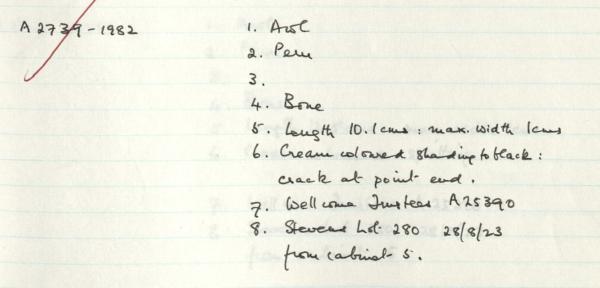 A 2739-1982
1. Awl
2. Peru
3.
4. Bone
5. Length 10.1cms : max. width 1cms
6. Cream coloured shading to black :
crack at point end.
7. Wellcome Trustees A25390
8. Stevens Lot 280 28/8/23
from cabinet 5.